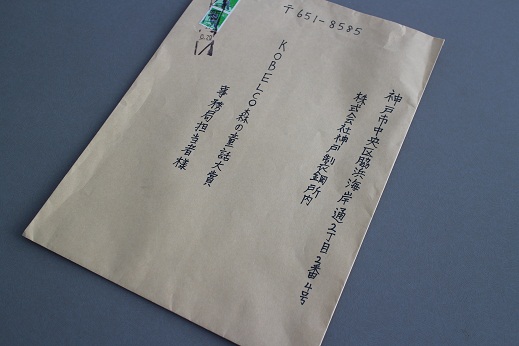 〒651-8585
神戸市中央区脇浜海岸通2丁目2番4号
株式会社神戸製鋼所内
KOBELCO森の童話大賞
事務局担当者様